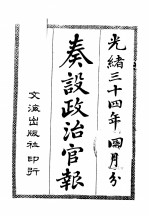 光緒三十四年四月分
奏設政治官報
文海出版社印行